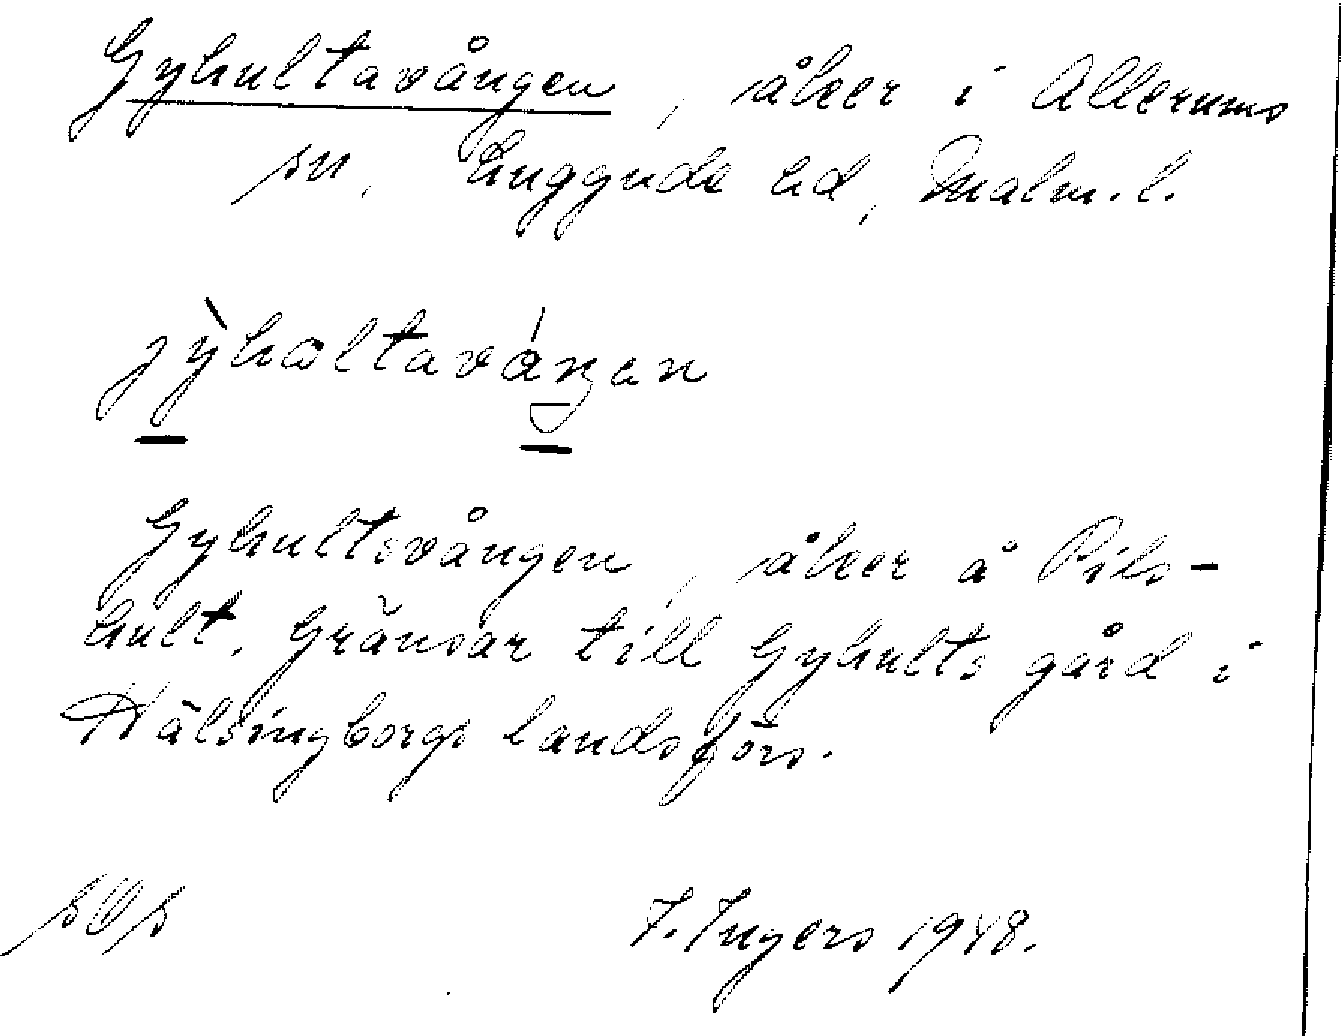 Gyhultavången, åker i Allerums
sn, Luggude hd, Malm.l.
jỳhultaváŋen
Gyhultsvången, åker å Pils-
hult. Gränsar till Gyhults gård i
Hälsingborgs landsförs.
I. Ingers 1948.